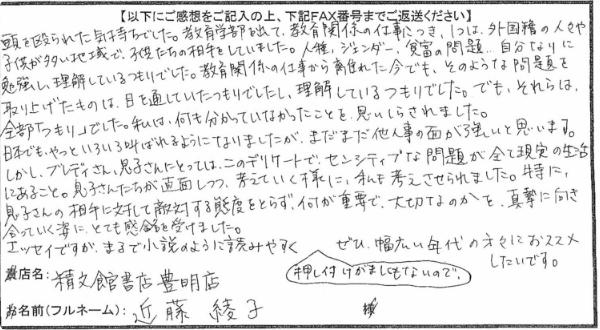 【以下にご感想をご記入の上、下記FAX番号までご返送ください】
頭を殴られた気持ちでした。教育学部を出て、教育関係の仕事につき、1つは、外国籍の人々や
子供が多い地域で、子供たちの相手をしていました。人種、ジェンダー、貧富の問題…自分なりに
勉強し、理解しているつもりでした。教育関係の仕事から離れた今でも、そのような問題を
取り上げたものは、目を通していたつもりでしたし、理解しているつもりでした。でも、それらは、
全部「つもり」でした。私は、何も分かっていなかったことを、思いしらされました。
日本でも、やっといろいろ叫ばれるようになりましたが、まだまだ他人事の面が強いと思います。
しかし、ブレディさん、息子さんにとっては、このデリケートで、センシティブな問題が全て現実の生活
にあること。息子さんたちが直面しつつ、考えていく様に、私も考えさせられました。特に、
息子さんの相手に対して敵対する態度をとらず、何が重要で、大切なのかを、真摯に向き
合っていく姿に、とても感銘を受けました。
エッセイですが、まるで小説のように読みやすく
ぜひ、幅広い年代の方々におススメ
したいです。
押し付けがましくもないので、
貴店名：精文館書店豊明店
お名前(フルネーム)：近藤 綾子 様